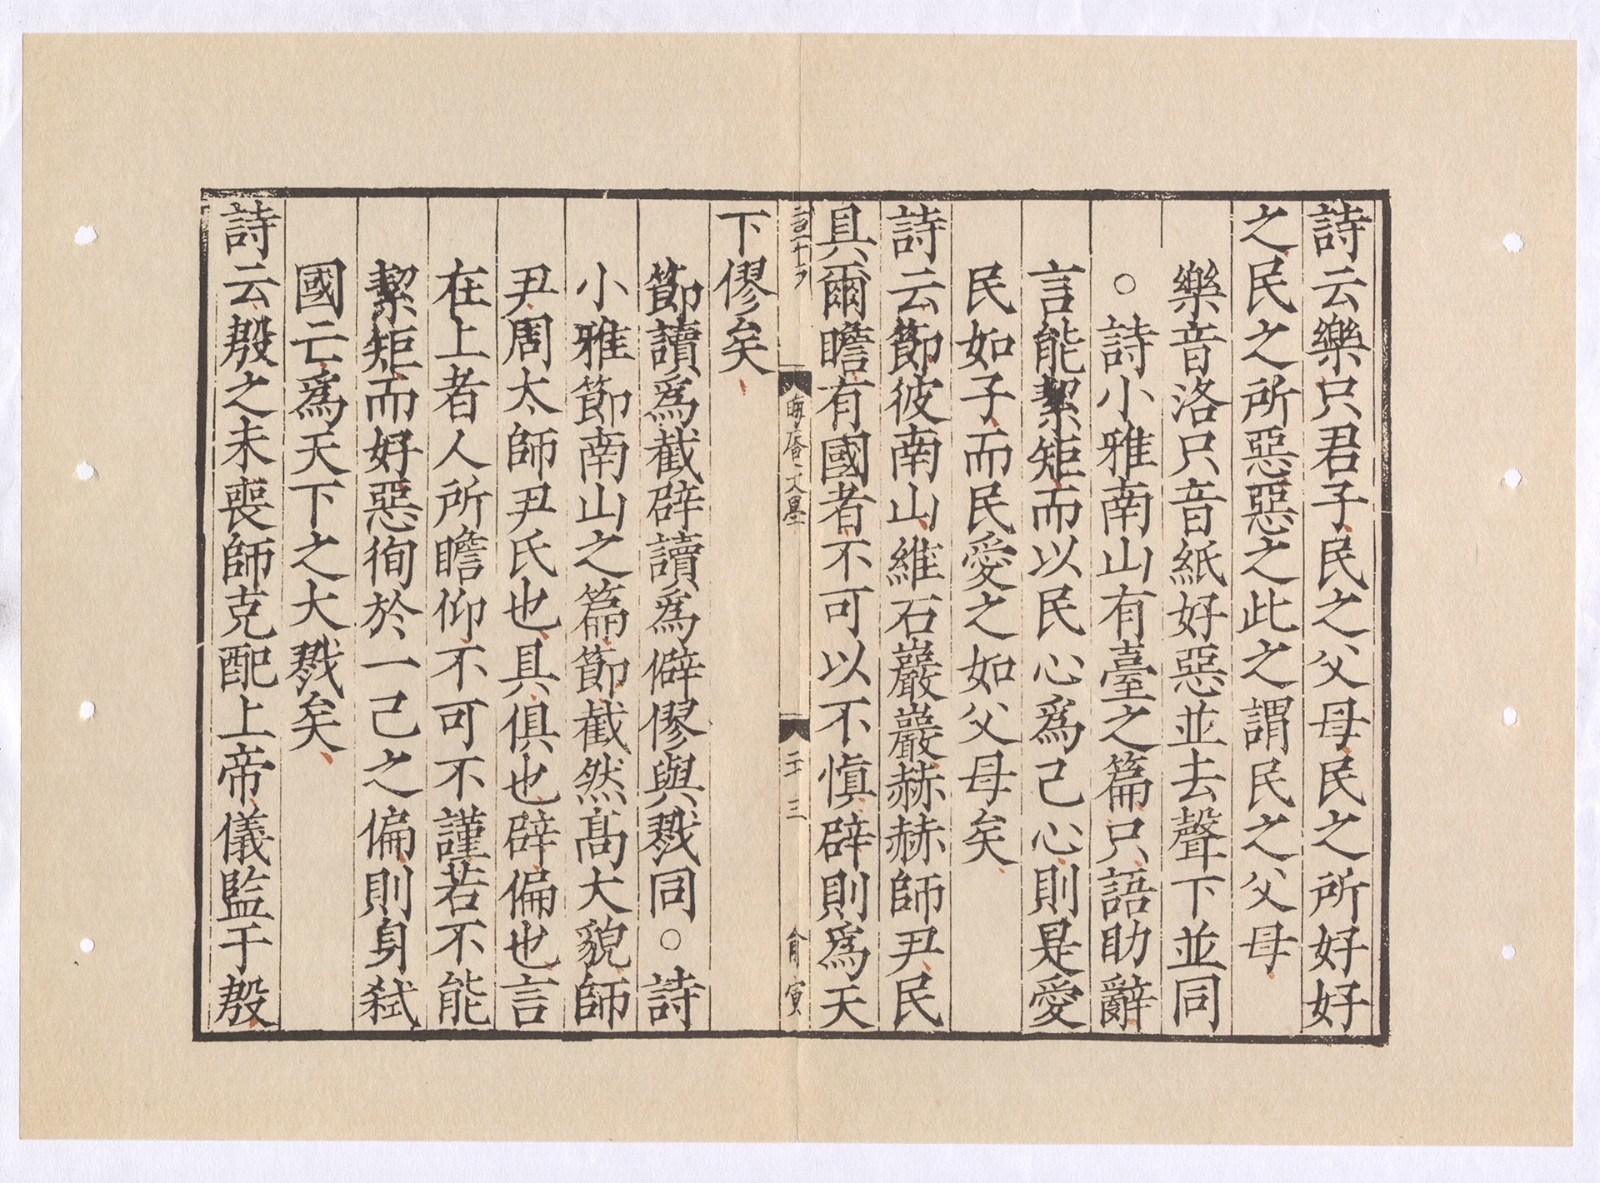 詩云樂只君子民之父母民之所好好
之民之所惡惡之此之謂民之父母
樂音洛只音紙好惡並去聲下並同
○詩小雅南山有臺之篇只語助辭
言能絜矩而以民心爲己心則是愛
民如子而民愛之如父母矣
詩云節彼南山維石巖巖赫赫師尹民
具爾瞻有國者不可以不慎辟則爲天
晦庵文
三
俞寅
下僇矣
節讀爲截辟讀爲僻僇與戮同○詩
小雅節南山之篇節截然高大貌師
尹周太師尹氏也具俱也辟偏也言
在上者人所瞻仰不可不謹若不能
絜矩而好惡徇於一己之偏則身弒
國亡爲天下之大戮矣
詩云殷之未喪師克配上帝儀監于殷